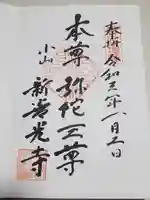 奉拝 令和三年一月二日
本尊 弥陀三尊
小山
新善光寺